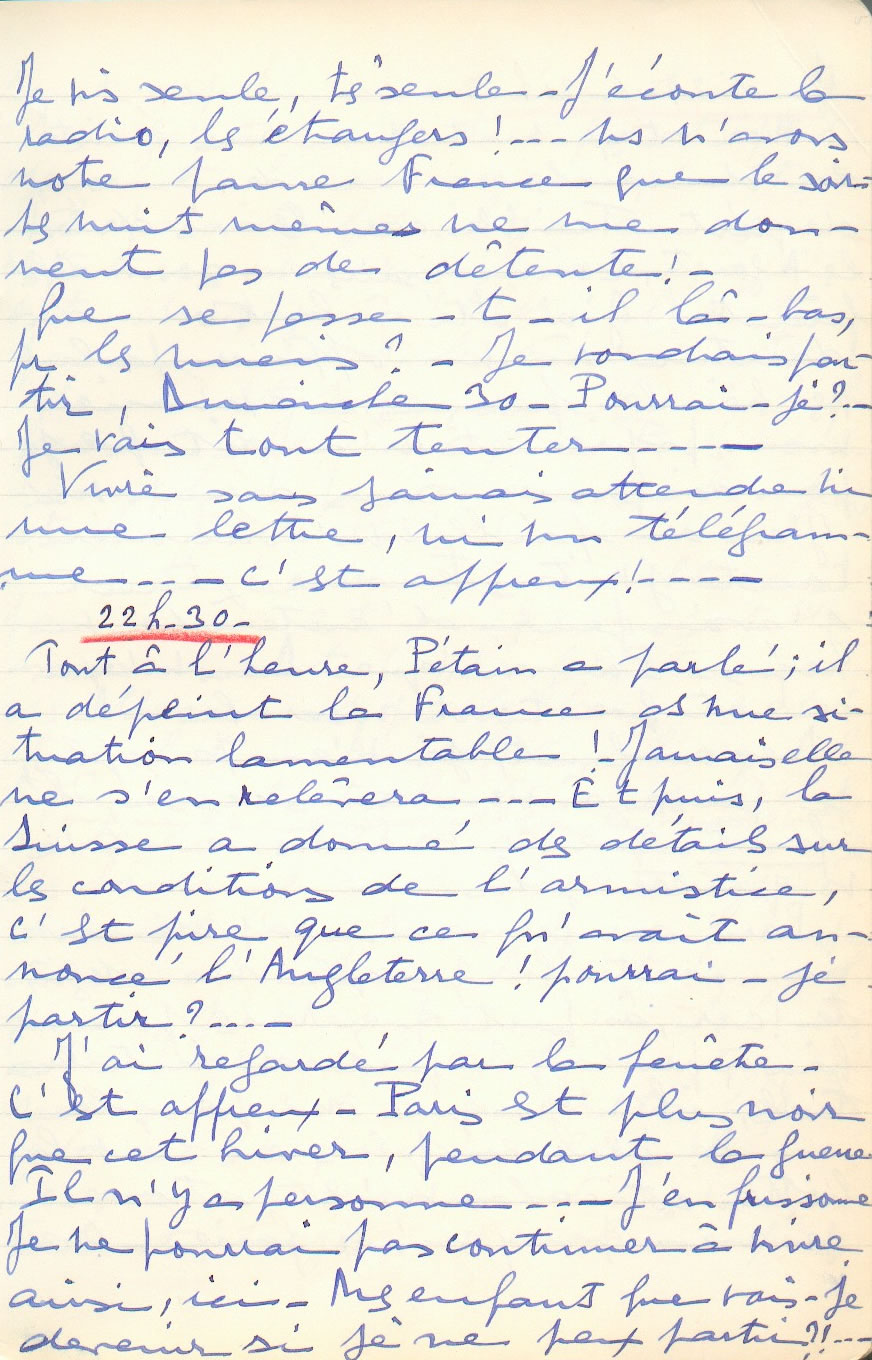 Je vis seule, ts seule - J'écoute la
radio, ls étrangers !--- ns n'avons
notre pauvre France que le soir-
ls nuit mêmes ne me don-
nent pas de détente ! -
Que se passe - t - il là - bas,
pr ls miens ? - Je voudrais par-
tir, Dimanche 30 - Pourrai-je ? --
Je vais tout tenter - - - - -
Vivre sans jamais attendre ni
une lettre, ni un télégram-
me - - - - c'est affreux ! - - - -
22 h - 30 -
Tout à l'heure, Pétain a parlé ; il
a dépeint la France ds une si-
tuation lamentable ! - Jamais elle
ne s'en relèvera - - - - Et puis, la
Suisse a donné ds détails sur
ls conditions de l'armistice,
c'est pire que ce qu'avait an-
noncé l'Angleterre ! pourrai - je
partir ? - - - -
J'ai regardé par la fenêtre -
C'est affreux - Paris est plus noir
que cet hiver, pendant la guerre
Il n'y a personne - - - - J'en frissonne
Je ne pourrai pas continuer à vivre
ainsi, ici - Ms enfant que vais-je
devenir si je ne peux partir ?! - - -